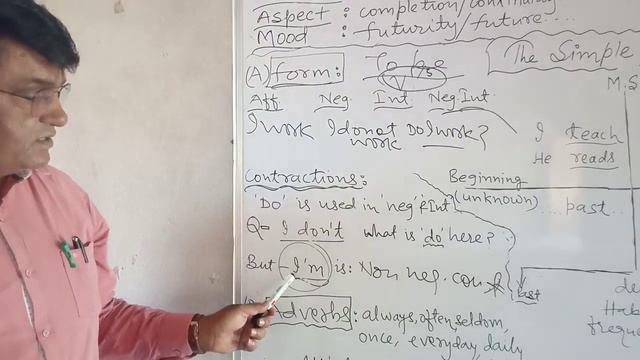 Aspect : completion/continuity
Mood : futurity/future....
(A) form: To be
V5
The Simple
Aff Neg. Int. Neg.Int.
M.S
I work I do not work Do I work?
I teach
He reads
Contractions:
Beginning
(unknown) ....past...
'Do' is used in 'neg' & Int
Q= I don't what is 'do' here?
But I'm is: Non neg. con
last
Adverbs: always, often, seldom,
once, everyday, daily
Hab
freque